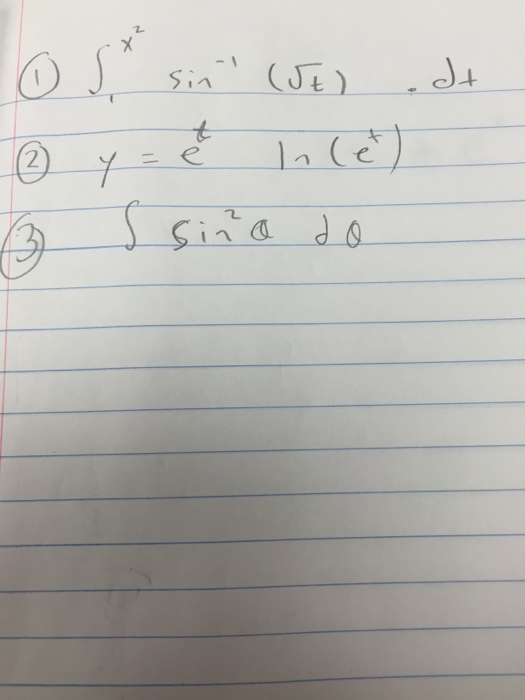 ① ∫₁^x² sin⁻¹ (√t) . dt
② y = e^t ln(e^t)
③ ∫ sin²θ dθ